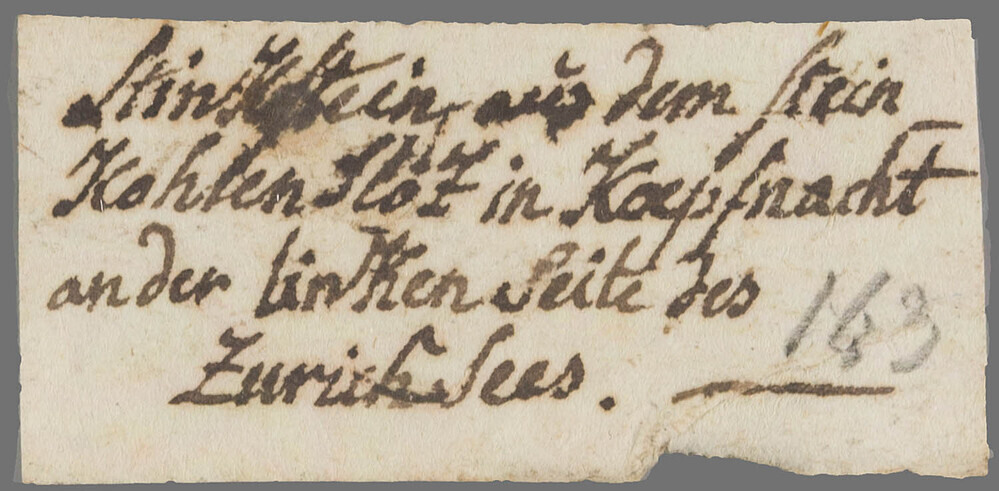 Stinkstein, aus dem Stein
Kohlen Flöz in Kaepfnacht
an der linken Seite des
Zurich Sees. —
163